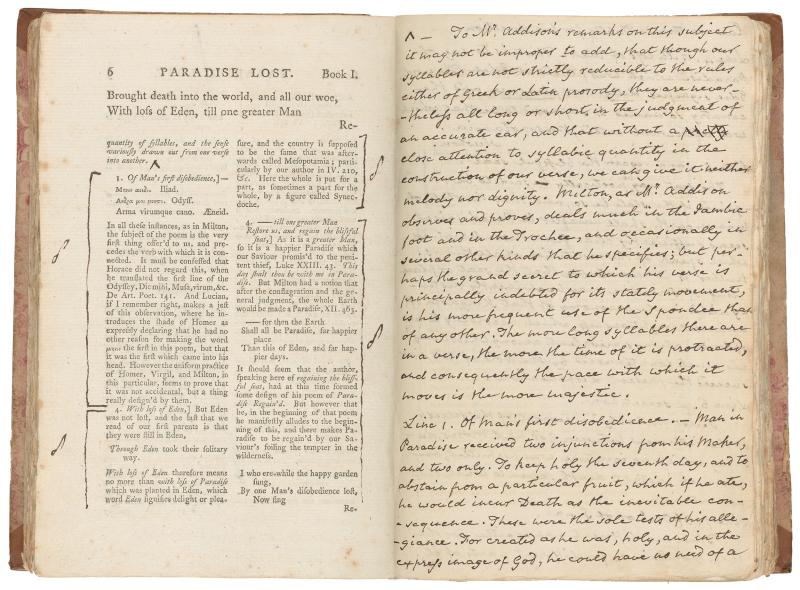 6 PARADISE LOST. Book I.
Brought death into the world, and all our woe,
With loſs of Eden, till one greater Man
Re-
quantity of ſyllables, and the ſenſe
variouſly drawn out from one verſe
into another.
1. Of Man's firſt diſobedience,]—
Μηνιν αειδε. Iliad.
Ανδρα μοι εννεπε. Odyſſ.
Arma virumque cano. Æneid.
In all theſe inſtances, as in Milton,
the ſubject of the poem is the very
firſt thing offer'd to us, and pre-
cedes the verb with which it is con-
nected. It muſt be confeſſed that
Horace did not regard this, when
he tranſlated the firſt line of the
Odyſſey, Dic mihi, Muſa, virum, &c.
De Art. Poet. 141. And Lucian,
if I remember right, makes a jeſt
of this obſervation, where he in-
troduces the ſhade of Homer as
expreſsly declaring that he had no
other reaſon for making the word
μηνιν the firſt in this poem, but that
it was the firſt which came into his
head. However the uniform practice
of Homer, Virgil, and Milton, in
this particular, ſeems to prove that
it was not accidental, but a thing
really deſign'd by them.
4. With loſs of Eden,] But Eden
was not loſt, and the laſt that we
read of our firſt parents is that
they were ſtill in Eden,
Through Eden took their ſolitary
way.
With loſs of Eden therefore means
no more than with loſs of Paradiſe
which was planted in Eden, which
word Eden ſignifies delight or plea-
ſure, and the country is ſuppoſed
to be the ſame that was after-
wards called Meſopotamia; parti-
cularly by our author in IV. 210,
&c. Here the whole is put for a
part, as ſometimes a part for the
whole, by a figure called Synec-
doche.
4. —till one greater Man
Reſtore us, and regain the bliſsful
ſeat,] As it is a greater Man,
ſo it is a happier Paradiſe which
our Saviour promis'd to the peni-
tent thief, Luke XXIII. 43. This
day ſhalt thou be with me in Para-
diſe. But Milton had a notion that
after the conflagration and the ge-
neral judgment, the whole Earth
would be made a Paradiſe, XII. 463.
—for then the Earth
Shall all be Paradiſe, far happier
place
Than this of Eden, and far hap-
pier days.
It ſhould ſeem that the author,
ſpeaking here of regaining the bliſs-
ful ſeat, had at this time formed
ſome deſign of his poem of Para-
diſe Regain'd. But however that
be, in the beginning of that poem
he manifeſtly alludes to the begin-
ning of this, and there makes Pa-
radiſe to be regain'd by our Sa-
viour's foiling the tempter in the
wilderneſs.
I who erewhile the happy garden
ſung,
By one Man's diſobedience loſt,
Now ſing
Re-
^ — To Mr. Addison's remarks on this subject
it may not be improper to add, that though our
syllables are not strictly reducible to the rules
either of Greek or Latin prosody, they are never-
-theless all long or short, in the judgment of
an accurate ear, and that without a
close attention to syllabic quantity in the
construction of our verse, we can give it neither
melody nor dignity. Milton, as Mr. Addison
observes and proves, deals much in the Iambic
foot and in the Trochee, and occasionally in
several other kinds that he specifies; but per-
haps the grand secret to which his verse is
principally indebted for its stately movement,
is his more frequent use of the Spondee than
of any other. The more long syllables there are
in a verse, the more the time of it is protracted,
and consequently the pace with which it
moves is the more majestic.
Line 1. Of Man's first disobedience. — Man in
Paradise received two injunctions from his Maker,
and two only. To keep holy the seventh day, and to
abstain from a particular fruit, which if he ate,
he would incur Death as the inevitable con-
-sequence. These were the sole tests of his alle-
-giance. For created as he was, holy, and in the
express image of God, he could have no need of a